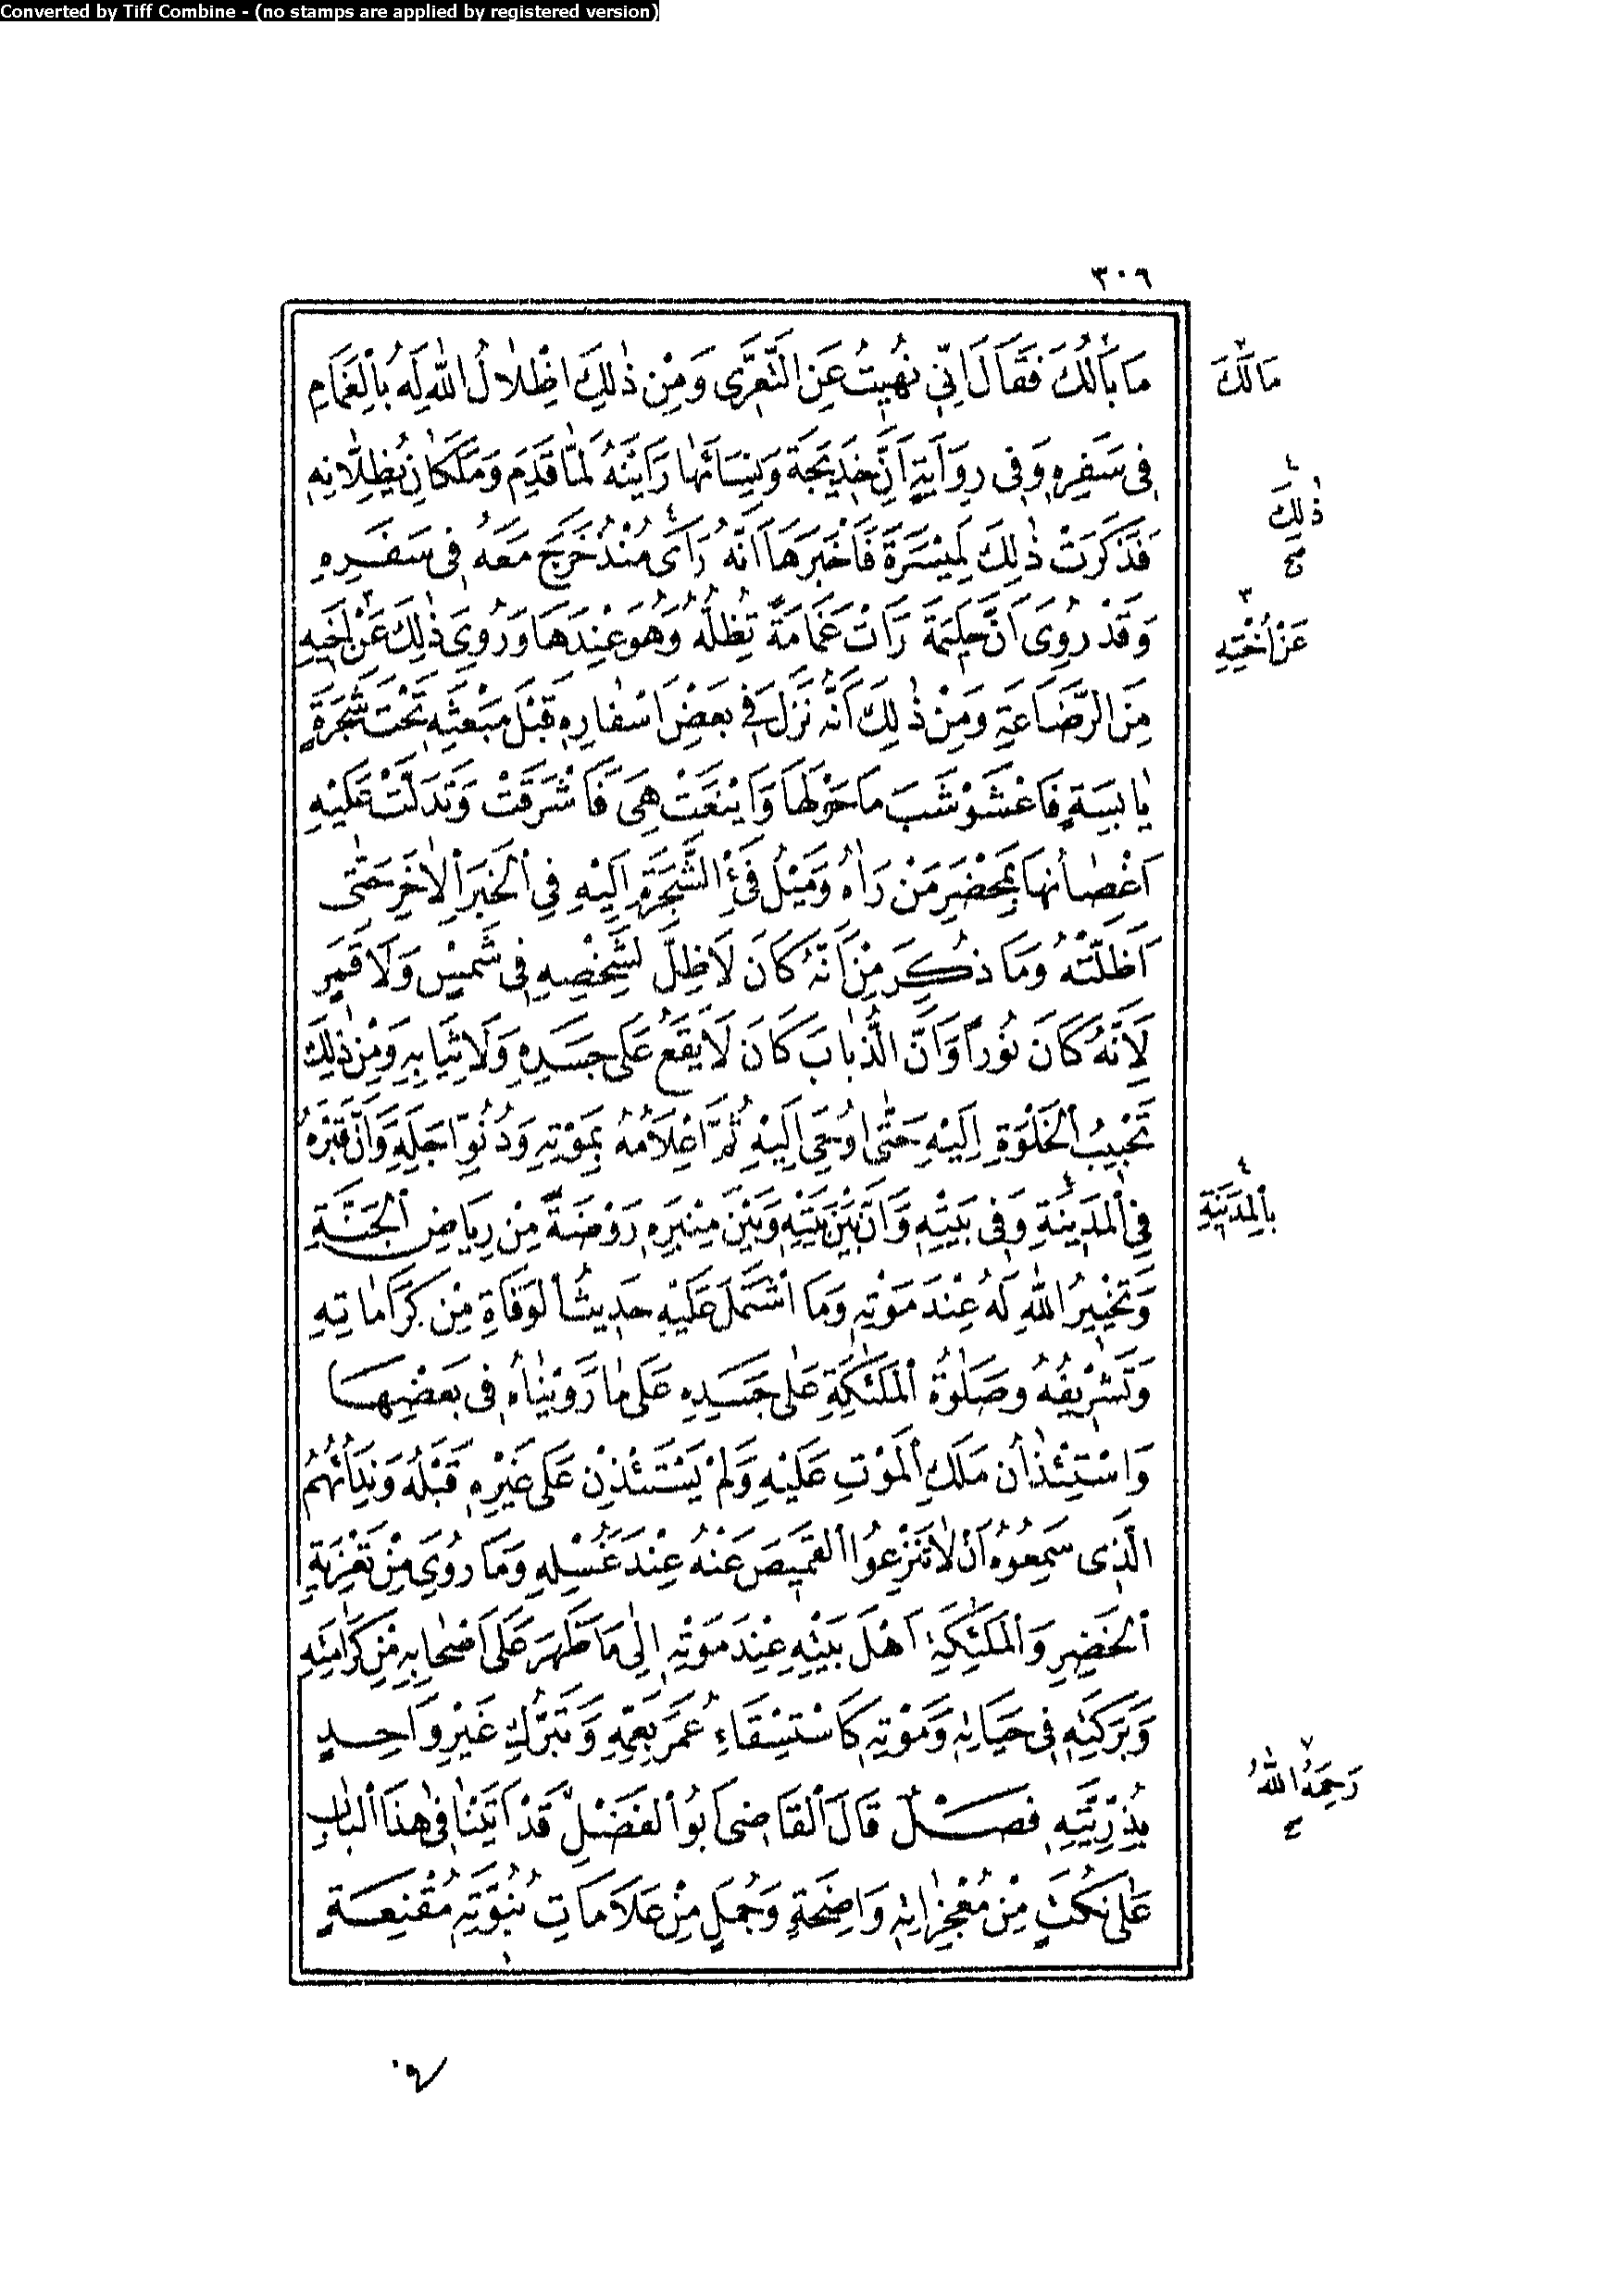 Converted by Tiff Combine - (no stamps are applied by registered version)
٣٠٦
مَا بَالُكَ فَقَالَ اِنّى نُهيتُ عَنِ التَّعَرِّى وَمِنْ ذٰلِكَ اِظْلَالُ اللهِ لَهُ بِالْغَمَامِ
فِى سَفَرِهِ وَفِى رِوَايَةٍ اَنَّ خَدِيجَةَ وَنِسَائَهَا رَاَيْنَهُ لَمَّا قَدِمَ وَمَلَكَانِ يُظِلَّانِهِ
فَذَكَرَتْ ذٰلِكَ لِمَيْسَرَةَ فَاَخْبَرَهَا اَنَّهُ رَاٰى مُنْذُ خَرَجَ مَعَهُ فِى سَفَرِهِ
وَقَدْ رُوِىَ اَنَّ حَلِيمَةَ رَاَتْ غَمَامَةً تُظِلُّهُ وَهُوَ عِنْدَهَا وَرُوِىَ ذٰلِكَ عَنْ اَخيهِ
مِنَ الرَّضَاعَةِ وَمِنْ ذٰلِكَ اَنَّهُ نَزَلَ فِى بَعْضِ اَسْفَارِهِ قَبْلَ مَبْعَثِهِ تَحْتَ شَجَرَةٍ
يَابِسَةٍ فَاعْشَوْشَبَ مَا حَوْلَهَا وَاَيْنَعَتْ هِىَ فَاَشْرَقَتْ وَتَدَلَّتْ عَلَيْهِ
اَغْصَانُهَا بِمَحْضَرِ مَنْ رَاٰهُ وَمَيْلُ فَيْءِ الشَّجَرَةِ اِلَيْهِ فِى الْخَبَرِ الْاٰخَرِ حَتّٰى
اَظَلَّتْهُ وَمَا ذُكِرَ مِنْ اَنَّهُ كَانَ لَا ظِلَّ لِشَخْصِهِ فِى شَمْسٍ وَلَا قَمَرٍ
لِاَنَّهُ كَانَ نُورًا وَاَنَّ الذُّبَابَ كَانَ لَا يَقَعُ عَلَى جَسَدِهِ وَلَا ثِيَابِهِ وَمِنْ ذٰلِكَ
تَحْبيبُ الْخَلْوَةِ اِلَيْهِ حَتّٰى اُوحِىَ اِلَيْهِ ثُمَّ اِعْلَامُهُ بِمَوْتِهِ وَدُنُوِّ اَجَلِهِ وَاَنَّ قَبْرَهُ
فِى الْمَدِينَةِ وَفِى بَيْتِهِ وَاَنَّ بَيْنَ بَيْتِهِ وَبَيْنَ مِنْبَرِهِ رَوْضَةً مِنْ رِيَاضِ الْجَنَّةِ
وَتَخْييرُ اللهِ لَهُ عِنْدَ مَوْتِهِ وَمَا اشْتَمَلَ عَلَيْهِ حَدِيثُ الْوَفَاةِ مِنْ كَرَامَاتِهِ
وَتَشْرِيفِهُ وَصَلٰوةُ الْمَلٰئِكَةِ عَلٰى جَسَدِهِ عَلَى مَا رَوَيْنَاهُ فِى بَعْضِهَا
وَاسْتِئْذَانُ مَلَكِ الْمَوْتِ عَلَيْهِ وَلَمْ يَسْتَئْذِنْ عَلَى غَيْرِهِ قَبْلَهُ وَنِدَائُهُمُ
الَّذِى سَمِعُوهُ اَنْ لَا تَنْزِعُوا الْقَمِيصَ عَنْهُ عِنْدَ غُسْلِهِ وَمَا رُوِىَ مِنْ تَعْزِيَةِ
الْخَضِرِ وَالْمَلٰئِكَةِ اَهْلَ بَيْتِهِ عِنْدَ مَوْتِهِ اِلٰى مَا ظَهَرَ عَلَى اَصْحَابِهِ مِنْ كَرَامَتِهِ
وَبَرَكَتِهِ فِى حَيَاتِهِ وَمَوْتِهِ كَاسْتِسْقَاءِ عُمَرَ بِعَمِّهِ وَتَبَرُّكِ غَيْرِ وَاحِدٍ
بِذُرِّيَّتِهِ فَصْلٌ قَالَ الْقَاضِى اَبُو الْفَضْلِ قَدْ اَتَيْنَا فِى هٰذَا الْبَابِ
عَلٰى نُكَتٍ مِنْ مُعْجِزَاتِهِ وَاضِحَةٍ وَجُمَلٍ مِنْ عَلَامَاتِ نُبُوَّتِهِ مُقْنِعَةٍ
٢ مَالَكَ
٤ ذٰلِكَ صح
٣ عَنْ اُخْتِهِ
٤ بِالْمَدِينَةِ
٧ رَحِمَهُ اللهُ